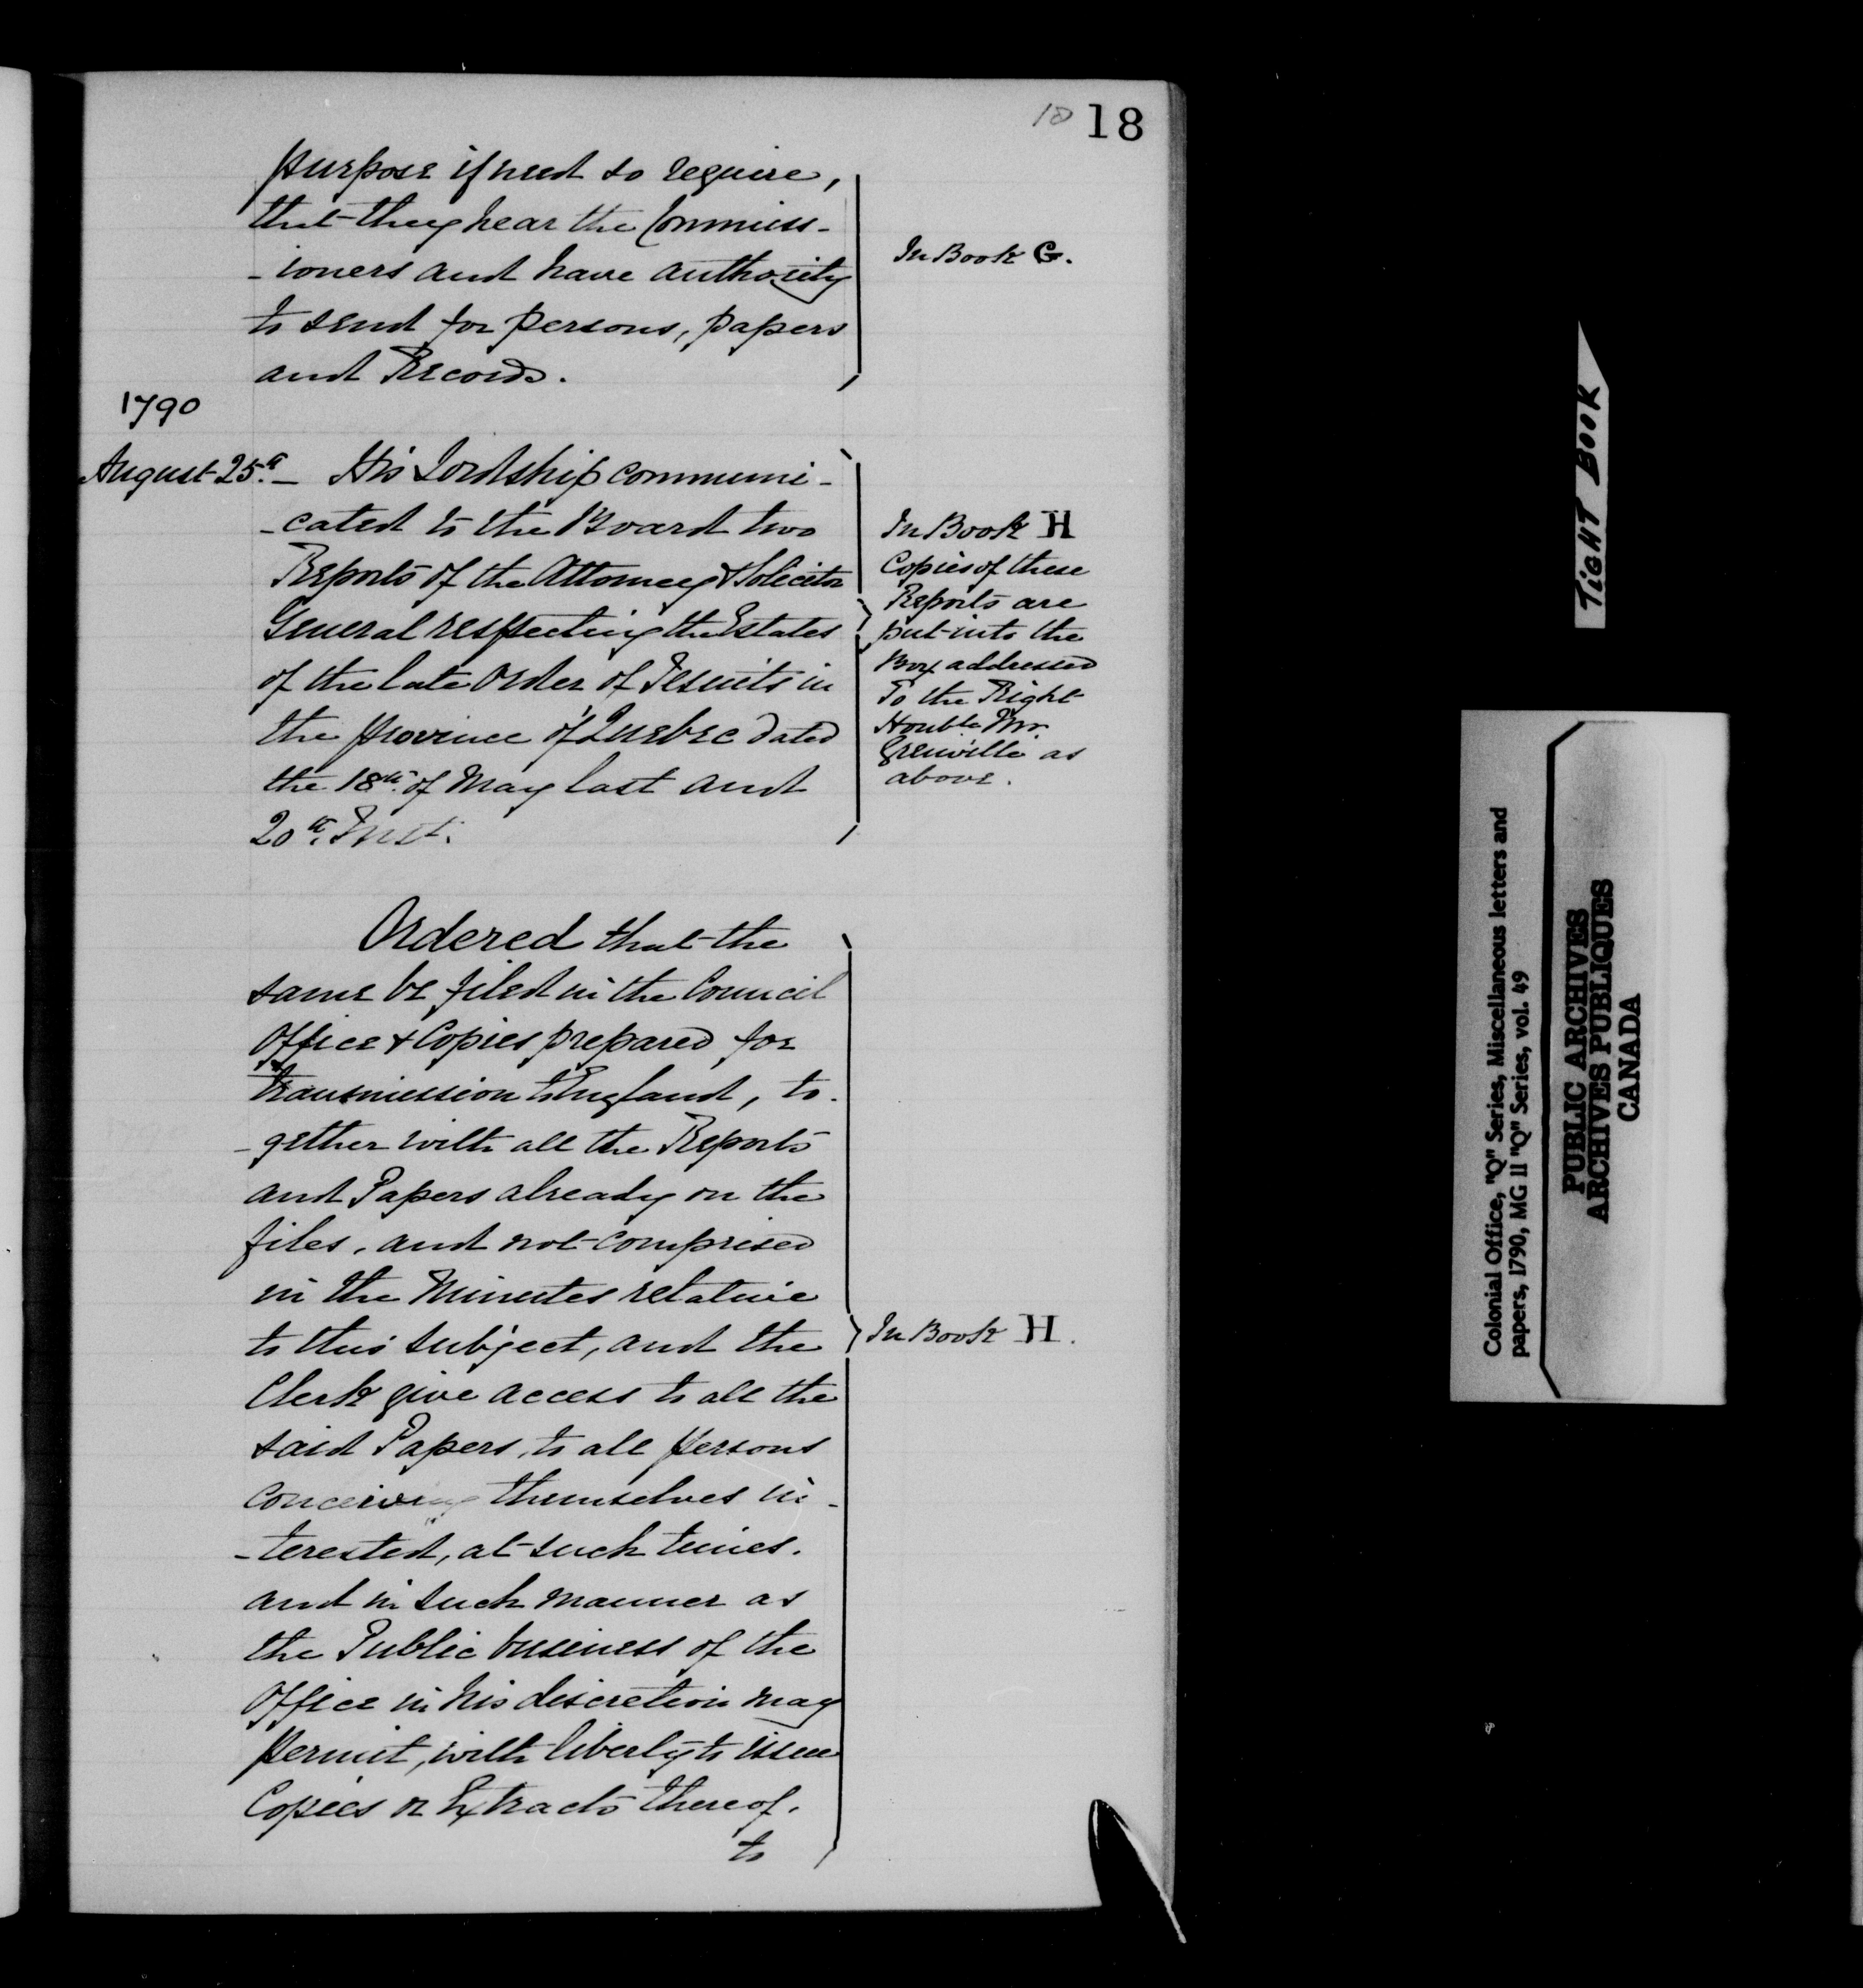 18 18
purpose if need so require,
that they hear the Commiss-
-ioners and have authority
to send for persons, papers
and Records.
In Book G.
1790
August 25th. – His Lordship communi-
-cated to the Board two
Reports of the Attorney & Solicitor
General respecting the Estates
of the late Order of Jesuits in
the province of Quebec dated
the 18th. of May last and
20th. Inst.
In Book H
Copies of these
Reports are
put into the
Box addressed
To the Right
Honble Mr.
Grenville as
above.
Ordered that the
same be filed in the Council
Office & Copies prepared for
transmission to England, to-
-gether with all the Reports
and Papers already on the
files, and not comprised
in the Minutes relative
to this subject, and the
Clerk give access to all the
said Papers, to all persons
conceiving themselves in-
-terested, at such times.
and in such manner as
the Public business of the
Office in his discretion may
permit, with liberty to issue
Copies or Extracts thereof.
to
In Book H.
TIGHT BOOK
Colonial Office, "Q" Series, Miscellaneous letters and
papers, 1790, MG 11 "Q" Series, vol. 49
PUBLIC ARCHIVES
ARCHIVES PUBLIQUES
CANADA